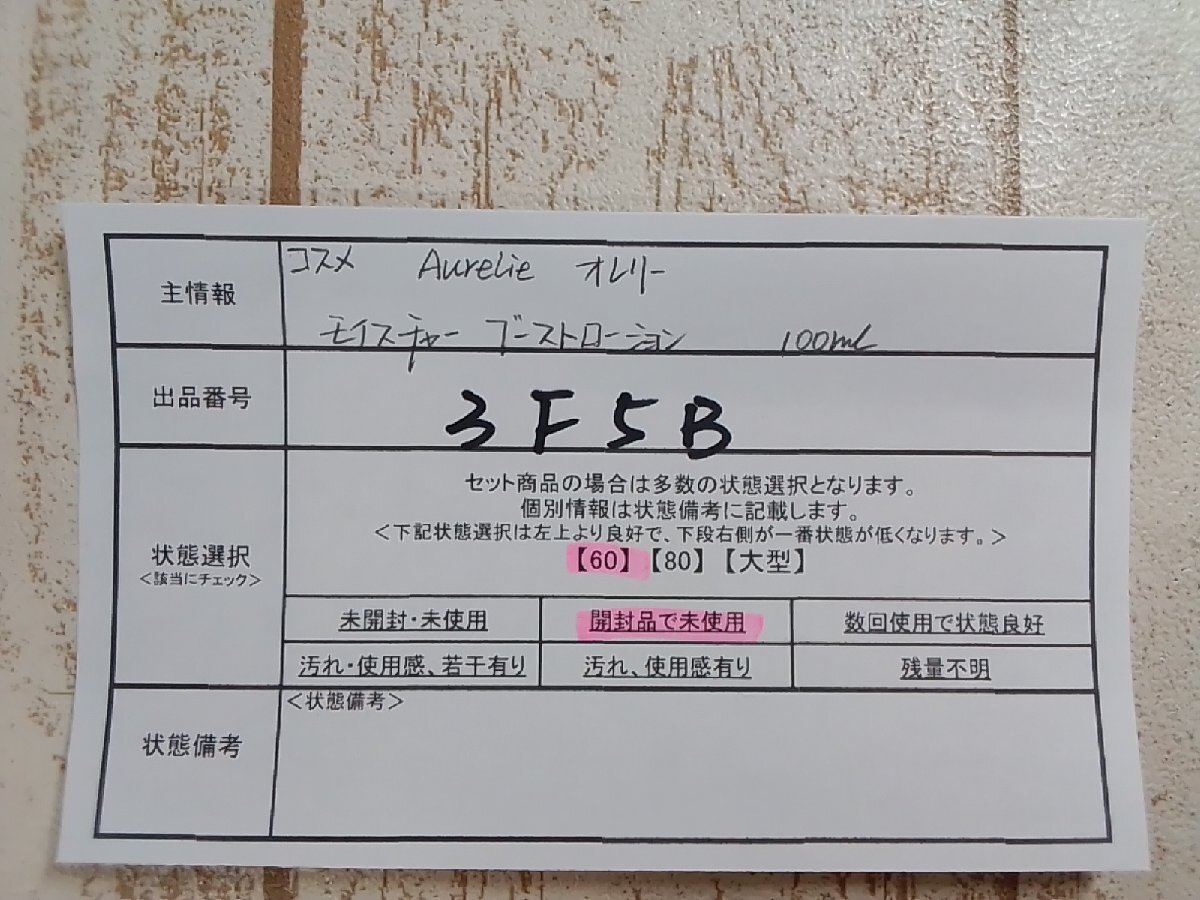 主情報
コスメ Aurelie オレリー
モイスチャー ブーストローション 100ml
出品番号
3F5B
状態選択
<該当にチェック>
セット商品の場合は多数の状態選択となります。
個別情報は状態備考に記載します。
<下記状態選択は左上より良好で、下段右側が一番状態が低くなります。>
【60】【80】【大型】
未開封・未使用 開封品で未使用 数回使用で状態良好
汚れ・使用感、若干有り 汚れ、使用感有り 残量不明
状態備考
<状態備考>